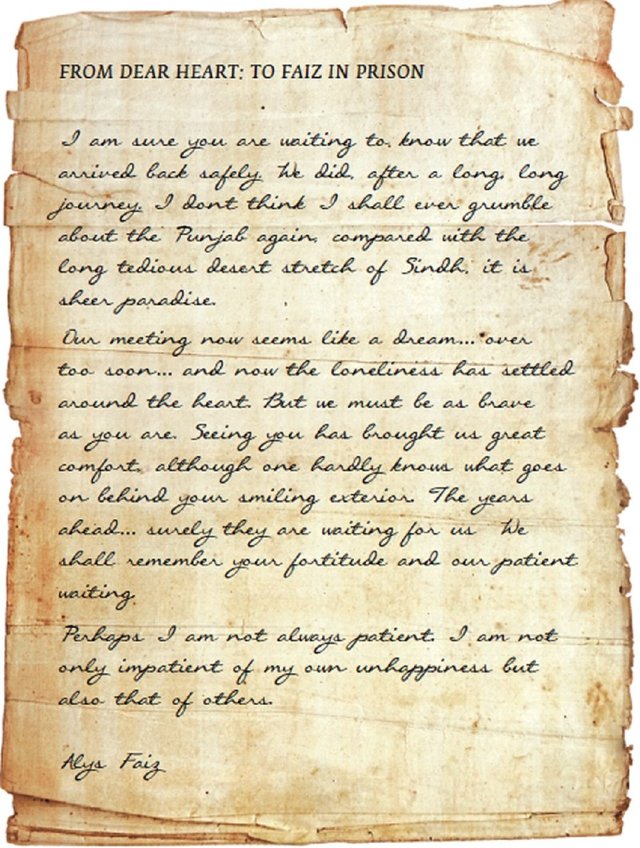 FROM DEAR HEART: TO FAIZ IN PRISON
I am sure you are waiting to know that we
arrived back safely. We did, after a long, long
journey. I dont think I shall ever grumble
about the Punjab again, compared with the
long tedious desert stretch of Sindh, it is
sheer paradise.
Our meeting now seems like a dream... over
too soon... and now the loneliness has settled
around the heart. But we must be as brave
as you are. Seeing you has brought us great
comfort, although one hardly knows what goes
on behind your smiling exterior. The years
ahead... surely they are waiting for us We
shall remember your fortitude and our patient
waiting.
Perhaps I am not always patient. I am not
only impatient of my own unhappiness but
also that of others.
Alys Faiz